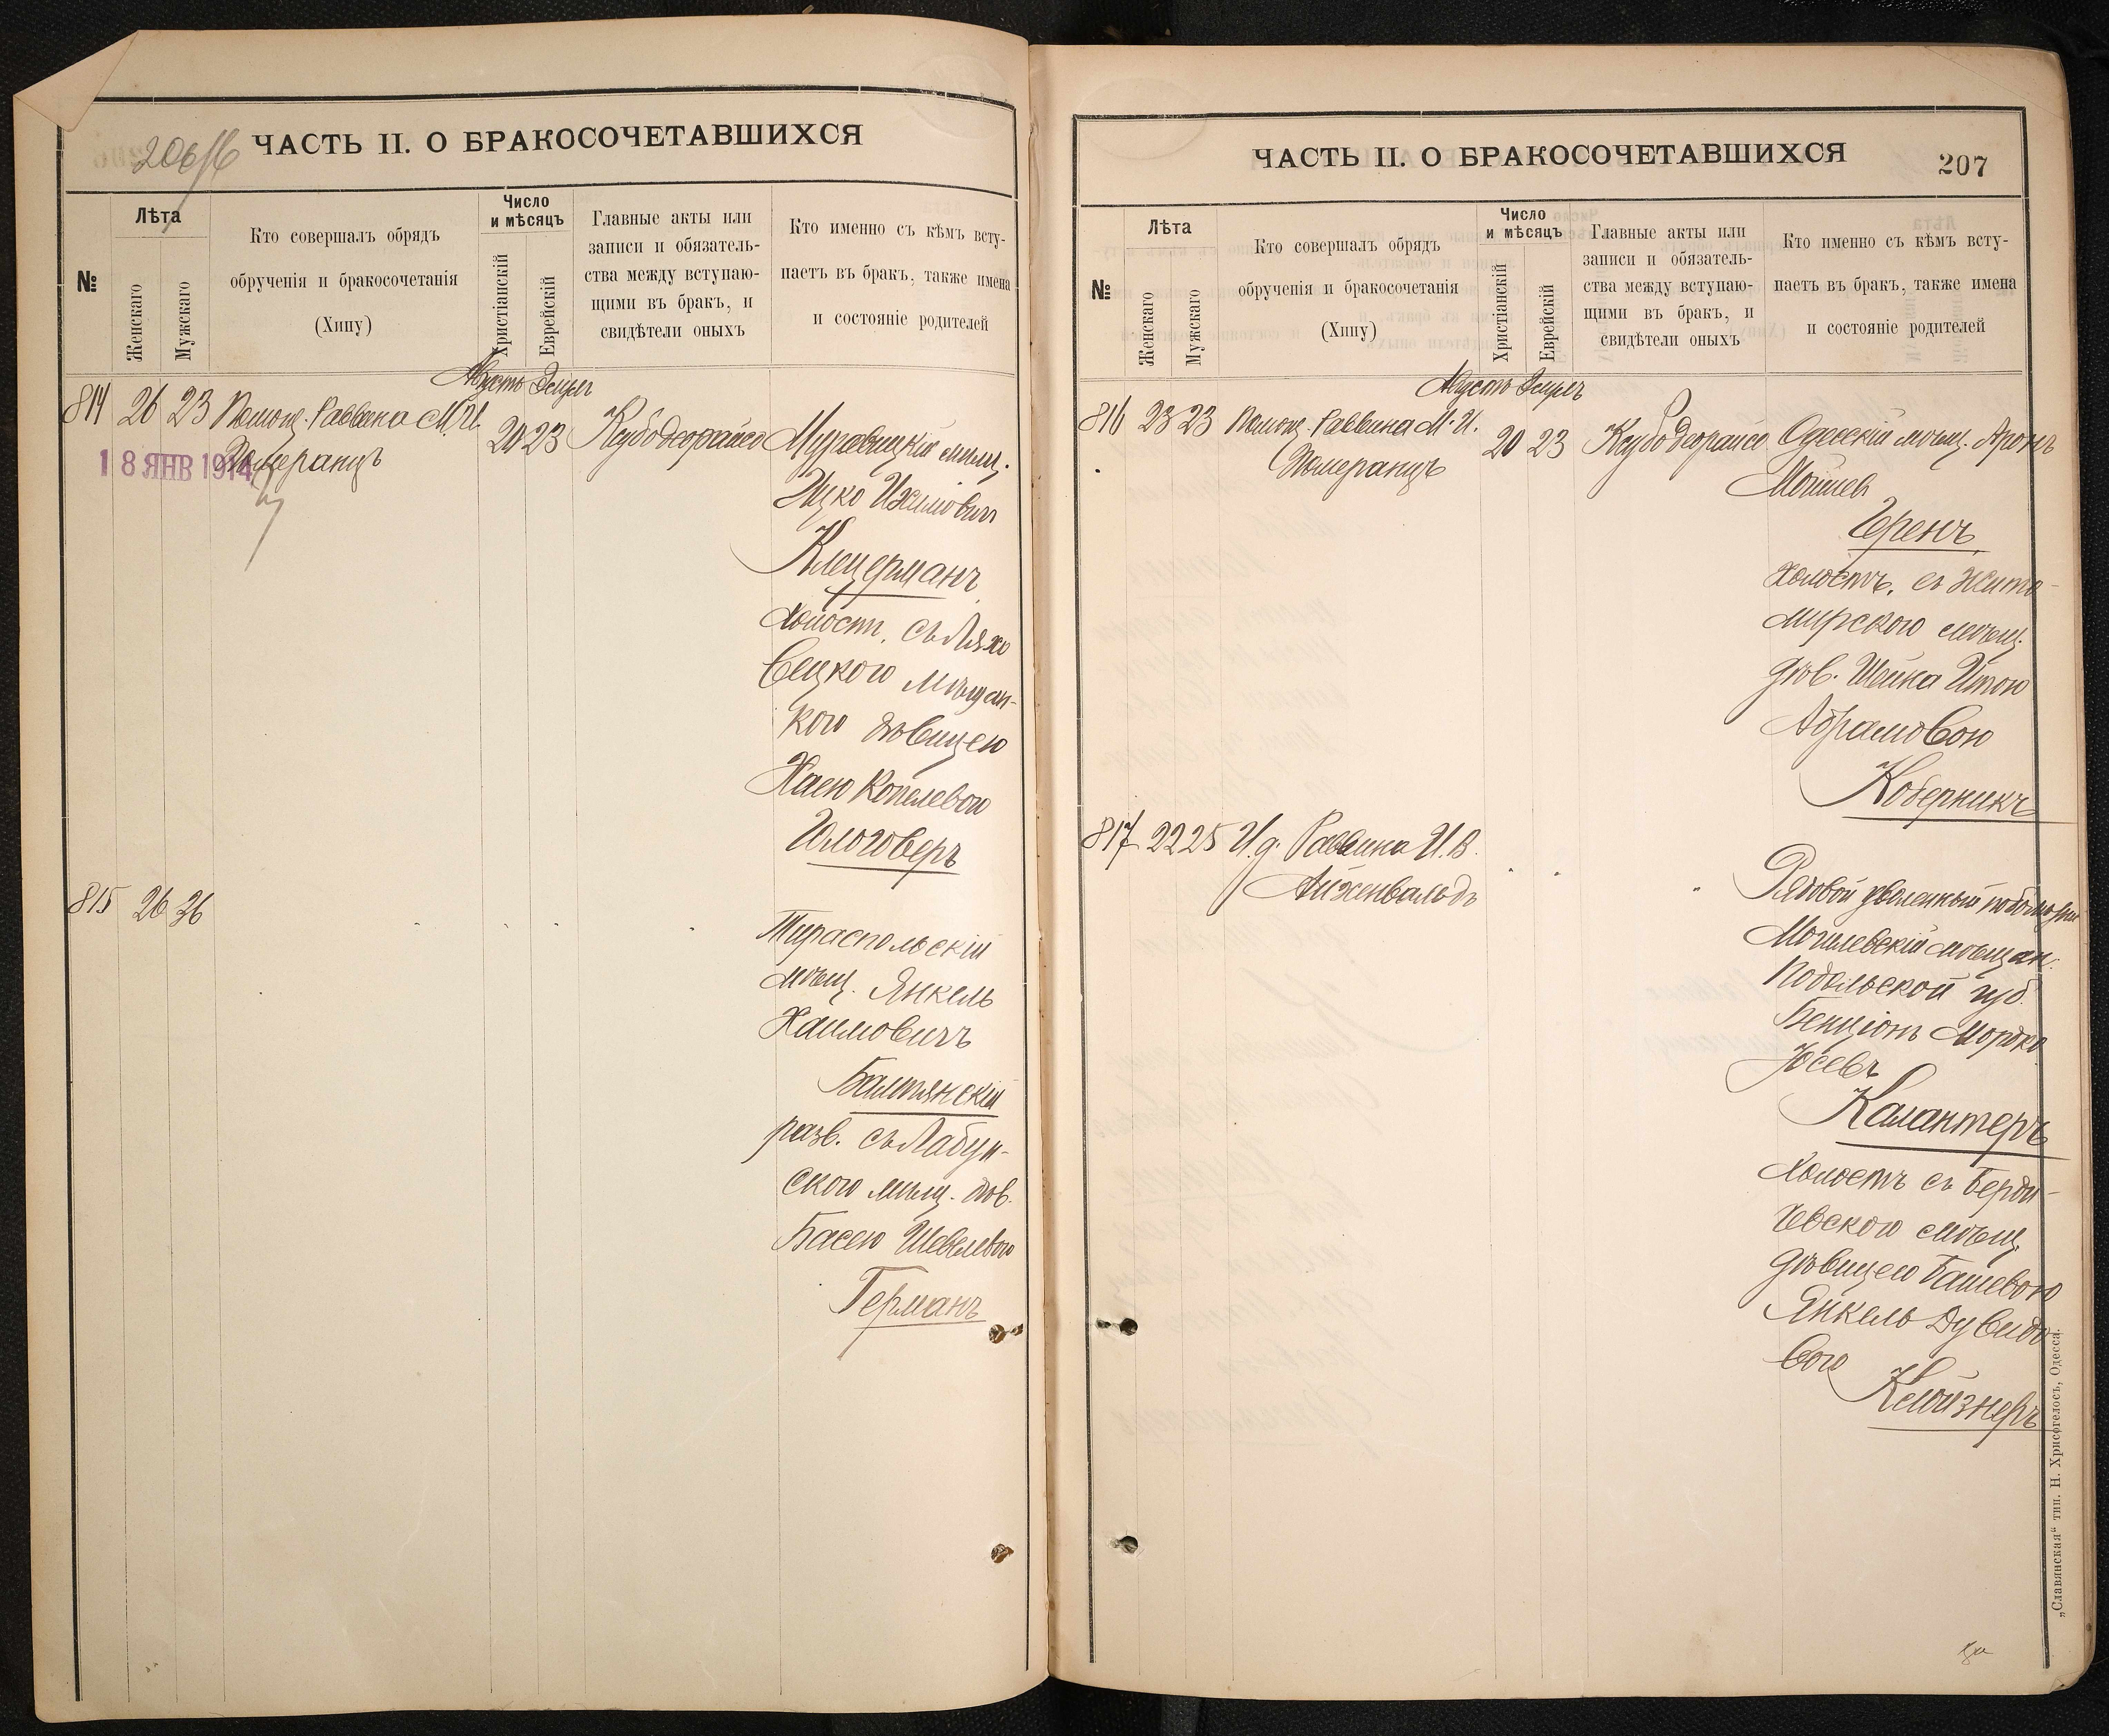 206/16
ЧАСТЬ II. О БРАКОСОЧЕТАВШИХСЯ
№
Лѣта
Женскаго
Мужскаго
Кто совершалъ обрядъ
обрученія и бракосочетанія
(Хипу)
Число
и мѣсяцъ
Христіанскій
Еврейскій
Главные акты или
записи и обязатель-
ства между вступаю-
щими въ бракъ, и
свидѣтели оныхъ
Кто именно съ кѣмъ всту-
паетъ въ бракъ, также имена
и состояніе родителей
Августъ Элулъ
814 26 23 Помощ. Раввина М. И. 20 23 Муравицкій мѣщ.
Померанцъ
18 ЯНВ 1914
Ицко Ихилович
Клецерманъ
холост. съ Ляхо
вецкого мѣщан-
кого дѣвицею
Хаею Копелевою
Гилоговеръ
815 26 36
Тираспольскій
мѣщ. Янкель
Хаимовичъ
Балтянскій
разв. съ Лабун-
ского мѣщ. дѣв.
Басею Шевелевою
Германъ
ЧАСТЬ II. О БРАКОСОЧЕТАВШИХСЯ
207
№
Лѣта
Женскаго
Мужскаго
Кто совершалъ обрядъ
обрученія и бракосочетанія
(Хипу)
Число
и мѣсяцъ
Христіанскій
Еврейскій
Главные акты или
записи и обязатель-
ства между вступаю-
щими въ бракъ, и
свидѣтели оныхъ
Кто именно съ кѣмъ всту-
паетъ въ бракъ, также имена
и состояніе родителей
Августъ Элулъ
816 23 23 Помощ. Раввина М. И. 20 23 Одесскій мѣщ. Аронъ
Померанцъ
Мойшев
Геренъ
холостъ, съ Жито-
мирского мѣщ.
дѣв. Шейна Итою
Абрамовою
Коберникъ
817 22 25 И. д. Раввина И. В.
Айзенвальдъ
Рядовой уволенный
Могилевскій мѣщан.
Подольской губ.
Бенціонъ Мордко
Іосевъ
Калантеръ
холостъ съ Берди-
чевского мѣщ.
дѣвицею Башевою
Янкель Дувидо
вою
Клойзнеръ
„Славянская“ тип. Н. Хрисогелосъ, Одесса.